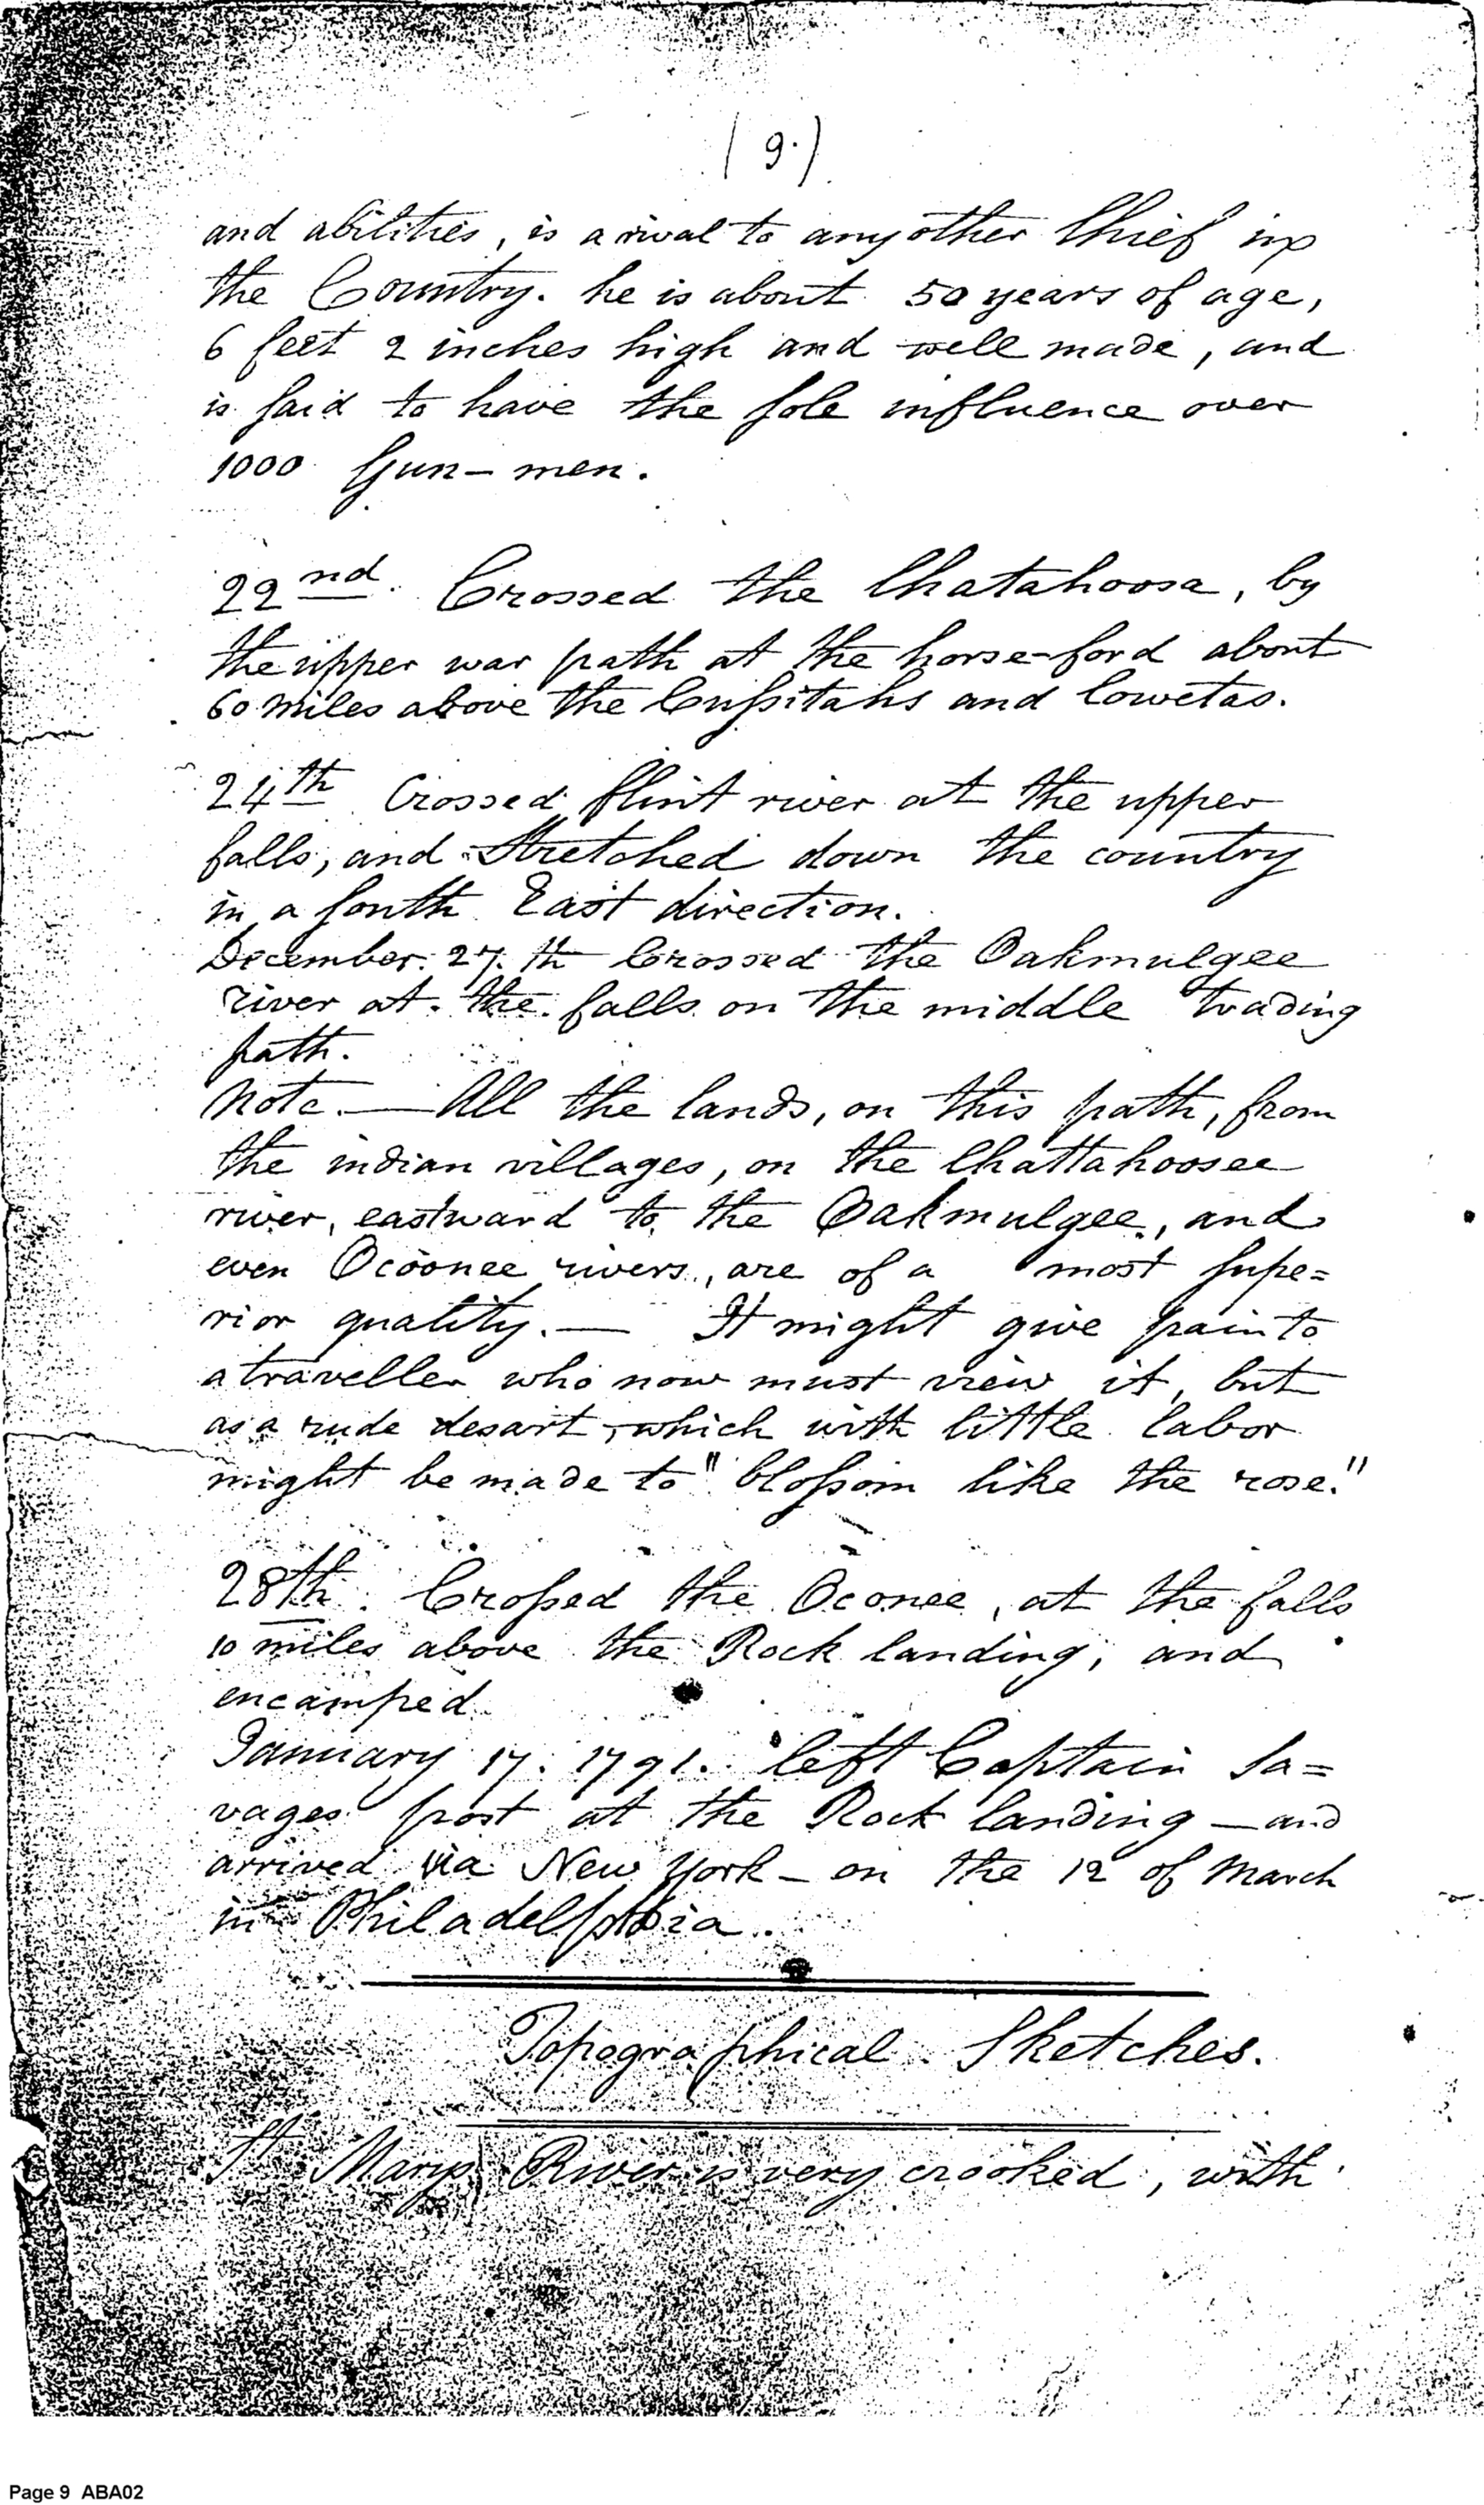 ( 9. )
and abilities, is a rival to any other Chief in
the Country. he is about 50 years of age,
6 feet 2 inches high and well made, and
is said to have the sole influence over
1000 Gun-men.
22nd. Crossed the Chatahoosa, by
the upper war path at the horse-ford about
60 miles above the Cussitahs and Cowetas.
24th Crossed flint river at the upper
falls, and Stretched down the country
in a South East direction.
December. 27. th Crossed the Oakmulgee
river at the falls on the middle trading
path.
Note. — All the lands, on this path, from
the indian villages, on the Chattahoosee
river, eastward to the Oakmulgee, and
even Ocoonee rivers, are of a most supe=
rior quality. — It might give pain to
a traveller who now must view it, but
as a rude desart, which with little labor
might be made to "blossom like the rose."
28th. Crossed the Oconee, at the falls
10 miles above the Rock landing; and
encamped.
January 17. 1791. left Captain Sa=
vages post at the Rock landing — and
arrived via New York — on the 12 of March
in Philadelphia.
Topographical Sketches.
St. Marys River is very crooked, with
Page 9 ABA02